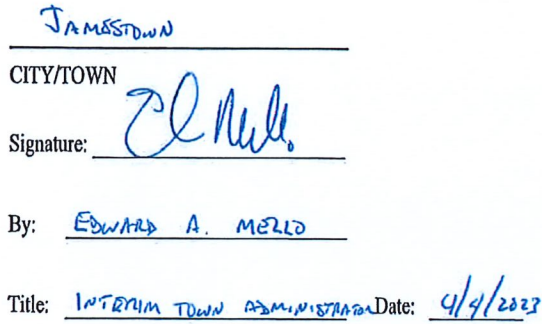 JAMESTOWN
CITY/TOWN
Signature: Ed Mello
By: EDWARD A. MELLO
Title: INTERIM TOWN ADMINISTRATOR Date: 4/4/2023